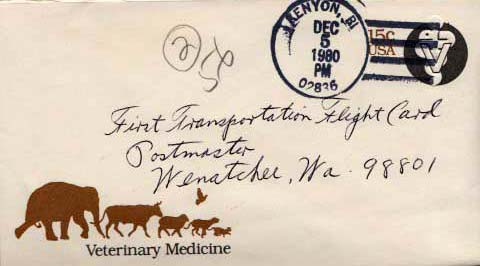 KENYON, RI
DEC
5
1980
PM
02836
15c
USA
First Transportation Flight Card
Postmaster
Wenatchee, Wa. 98801
Veterinary Medicine